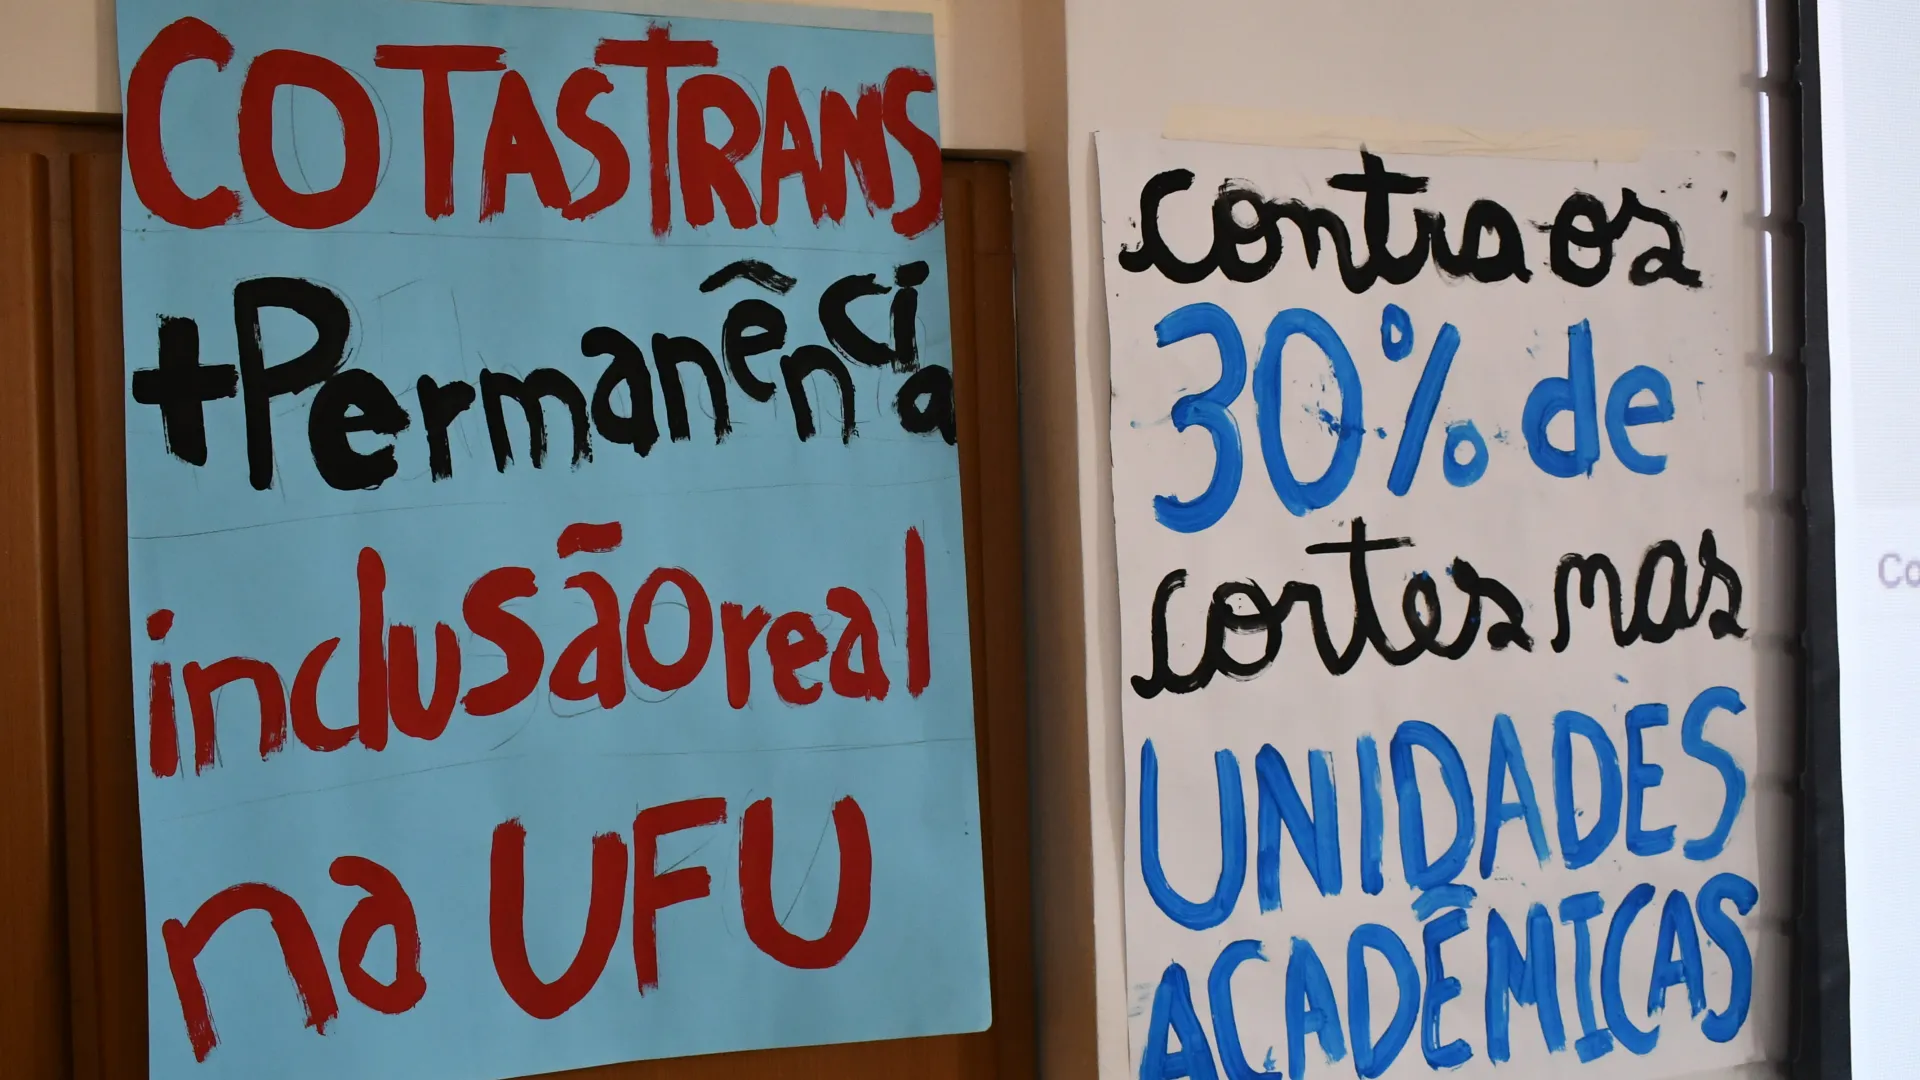 COTAS TRANS
+ Permanência
inclusão real
na UFU
contra os
30% de
cortes nas
UNIDADES
ACADÊMICAS
Co